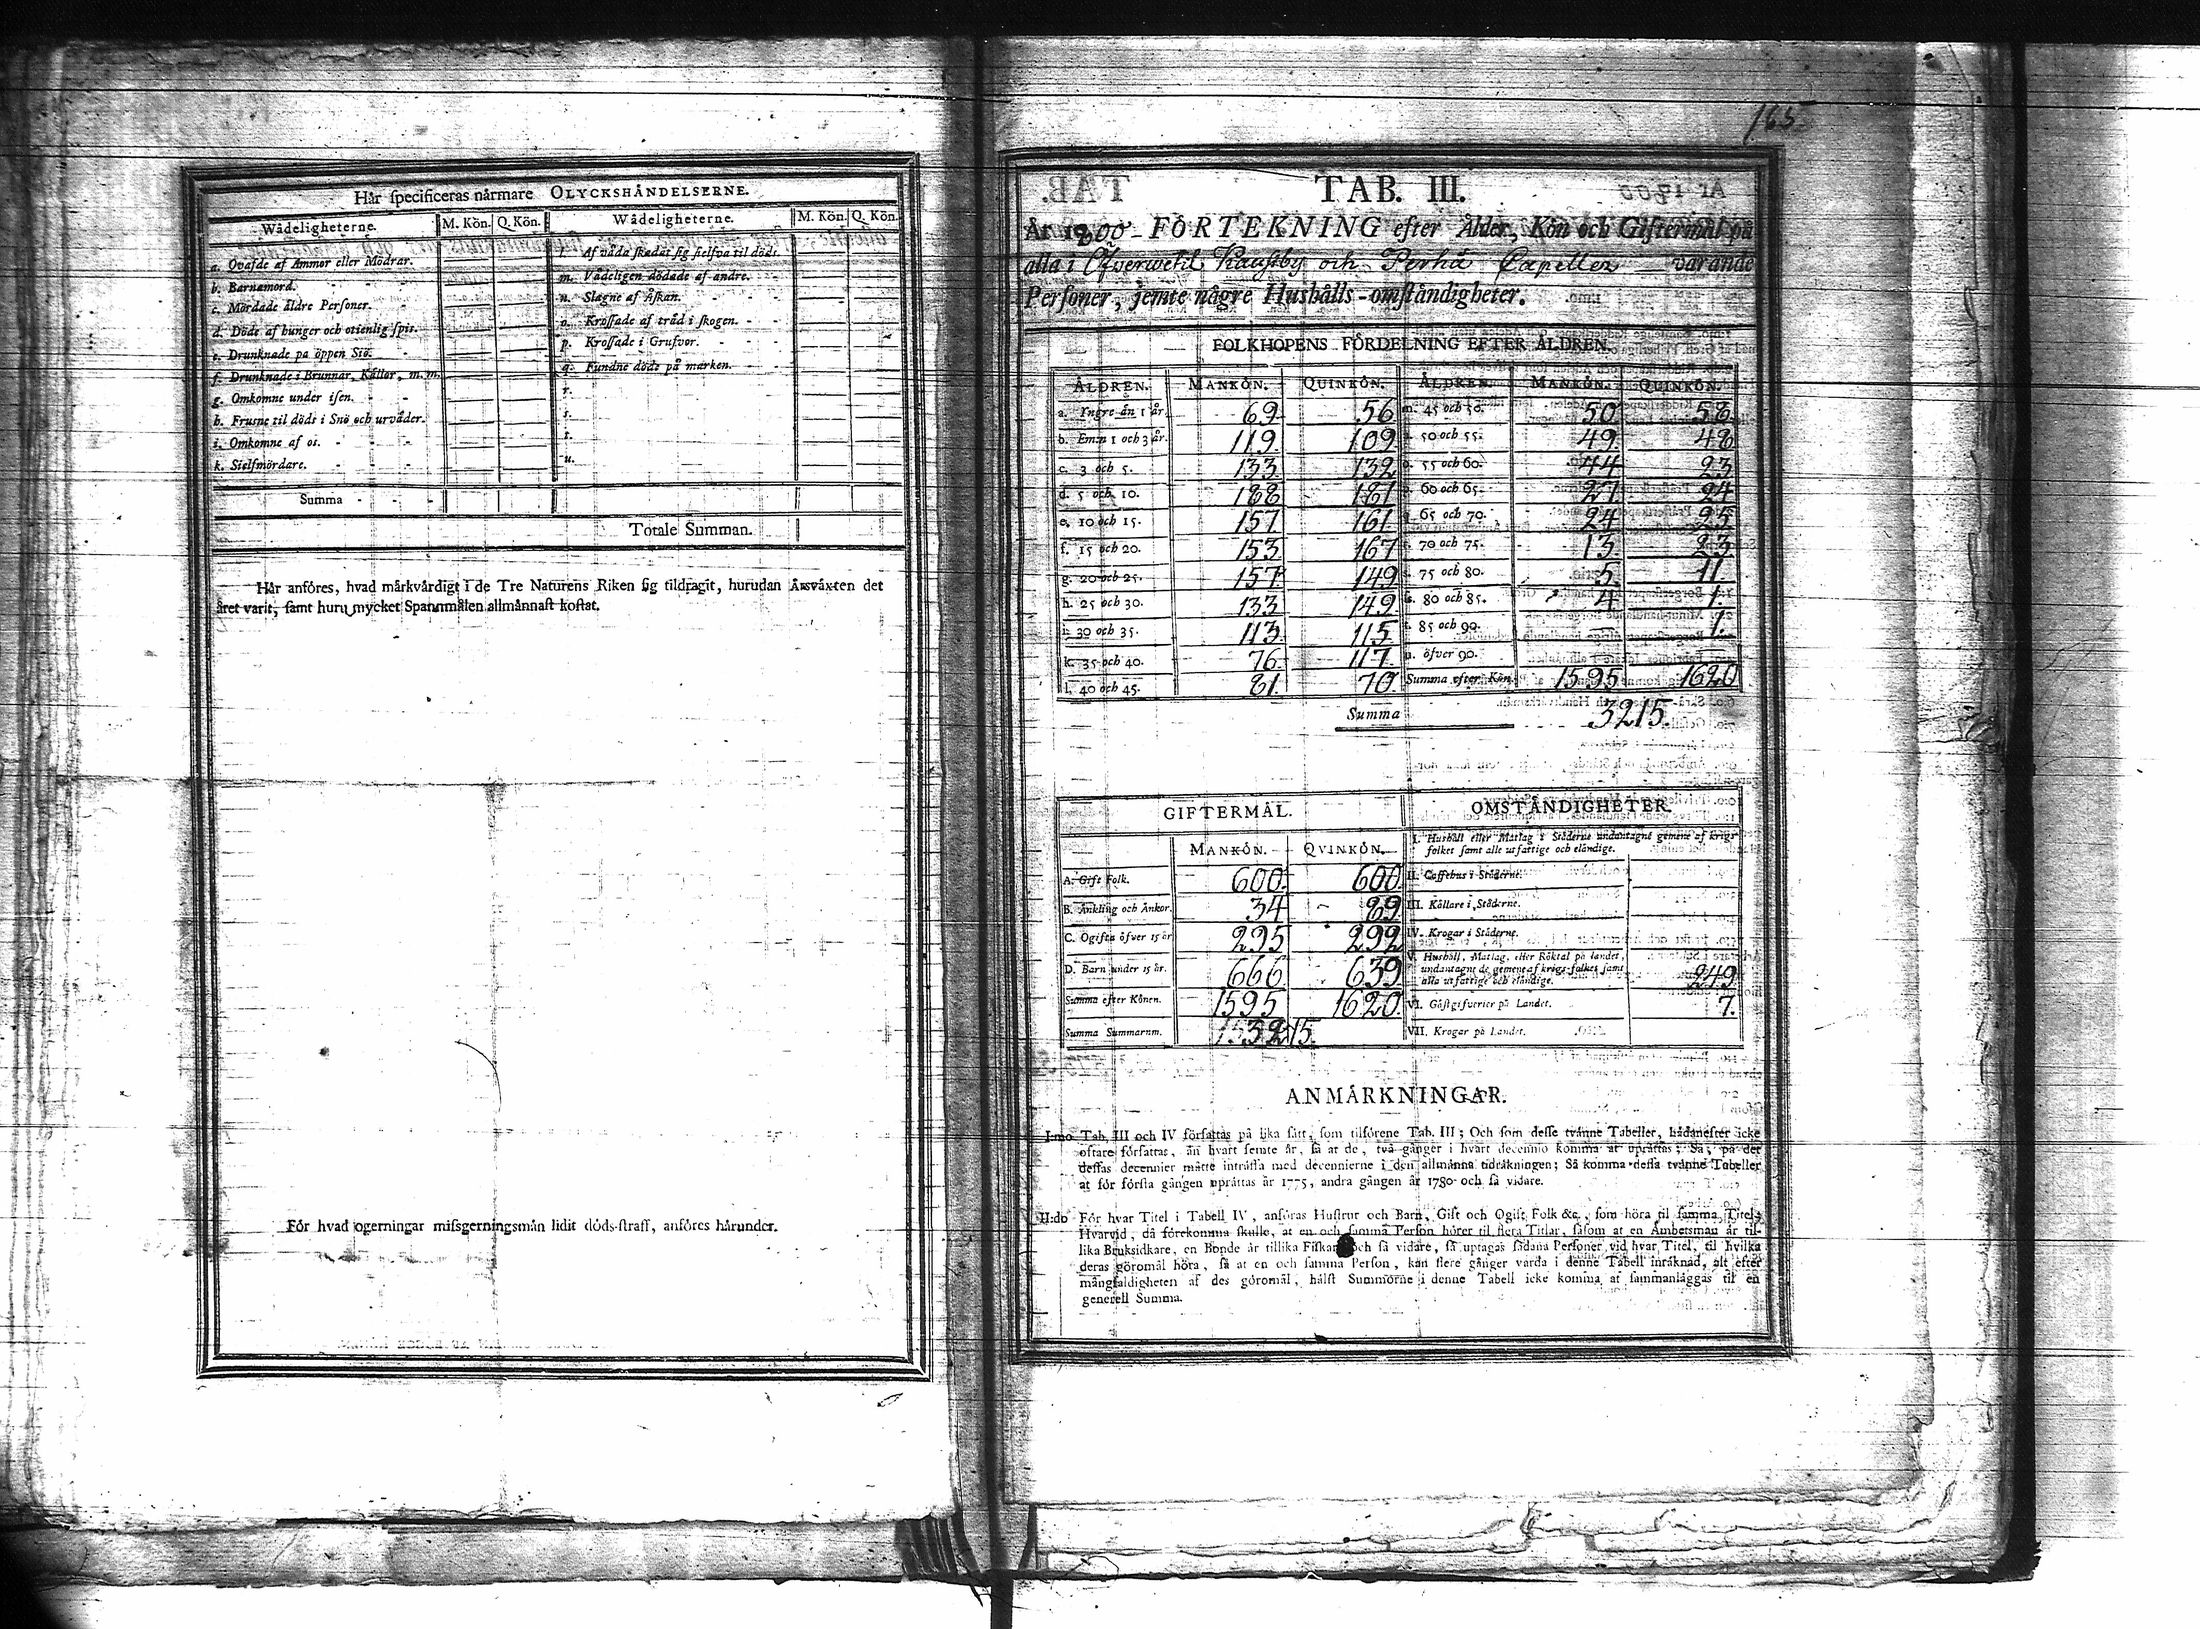 Hår specificeras nårmare OLYCKSHÅNDELSERNE.
Wådeligheterne. M. Kön. Q. Kön. Wådeligheterne. M. Kön. Q. Kön.
a. Qvafde af Ammor eller Mödrar. l. Af våda skadat sig sielfva til döds
b. Barnamord. m. Vådeligen dödade af andre.
c. Mördade åldre Personer. n. Slagne af Åskan.
d. Döde af hunger och otienlig spis. o. Krossade af tråd i skogen.
e. Drunknade på öppen Siö. p. Krossade i Grufvor.
f. Drunknade i Brunnar, Kållor, m. m. q. Fundne döde på marken.
g. Omkomne under isen. r.
h. Frusne til döds i Snö och urvåder. s.
i. Omkomne af os. t.
k. Sielfmördare. u.
Summa
Totale Summan.
Hår anföres, hvad mårkvårdigt i de Tre Naturens Riken sig tildragit, hurudan Årsvåxten det
året varit, samt huru mycket Spannmålen allmånnast kostat.
För hvad ogerningar missgerningsmån lidit döds-straff, anföres hårunder.
165
TAB. III.
År 1800 FÖRTEKNING efter Ålder, Kön och Giftermål på
alla i Öfverwetil Kaustby och Perhå Capeller varande
Personer, jemte någre Hushålls-omståndigheter.
FOLKHOPENS FÖRDELNING EFTER ÅLDREN.
ÅLDREN. MANKÖN. QUINKÖN. ÅLDREN. MANKÖN. QUINKÖN.
a. Yngre ån 1 år. 69 56 m. 45 och 50. 50 58
b. Em:n 1 och 3 år. 119. 109 50 och 55. 49. 48
c. 3 och 5. 133 132 o. 55 och 60. 44 23
d. 5 och 10. 188 181 60 och 65. 27 24
e. 10 och 15. 157 161 65 och 70. 24 25
f. 15 och 20. 153 167 70 och 75. 13 23
g. 20 och 25. 157 149 75 och 80. 5 11.
h. 25 och 30. 133 149 s. 80 och 85. 4 1.
i. 30 och 35. 113 115 t. 85 och 90. 1.
k. 35 och 40. 76 117 u. öfver 90.
l. 40 och 45. 81. 70. Summa efter Kön. 1595 1620
Summa 3215.
GIFTERMÅL. OMSTÅNDIGHETER.
MANKÖN. QVINKÖN. I. Hushåll eller Matlag i Ståderne undantagne gemene af krigs
folket samt alle utfattige och elåndige.
A. Gift Folk. 600 600. II. Caffehus i Ståderne.
B. Ånkling och Ånkor. 34 89 III. Kållare i Ståderne.
C. Ogifta öfver 15 år 295 292 IV. Krogar i Ståderne.
D. Barn under 15 år. 666 639 V. Hushåll, Matlag, eller Röktal på landet,
undantagne de gemene af krigs-folket samt
alla utfattige och elåndige. 249
Summa efter Könen. 1595 1620. VI. Gåstgifverier på Landet. 7.
Summa Summarum. 3215. VII. Krogar på Landet.
ANMÅRKNINGAR.
I:mo Tab. III och IV författas på lika sått, som tilförene Tab. III; Och som desse tvånne Tabeller, hådanefter icke
oftare författas, ån hvart femte år, så at de, två gånger i hvart decennio komma at upråttas; Så, på det
dessas decennier måtte intråffa med decennierne i den allmånna tidråkningen; Så komma dessa tvånne Tabeller
at för första gången upråttas år 1775, andra gången år 1780 och så vidare.
II:do För hvar Titel i Tabell IV, anföras Hustrur och Barn, Gift och Ogift Folk &c., som höra til samma Titel;
Hvarvid, då förekomma skulle, at en och samma Person hörer til flera Titlar, såsom at en Åmbetsman år til-
lika Bruksidkare, en Bonde år tillika Fiskare och så vidare, så uptagas sådana Personer vid hvar Titel, til hvilka
deras göromål höra, så at en och samma Person, kan flere gånger varda i denne Tabell inråknad, alt efter
mångfaldigheten af des göromål, hålst Summorne i denne Tabell icke komma at sammanlåggas til en
generell Summa.